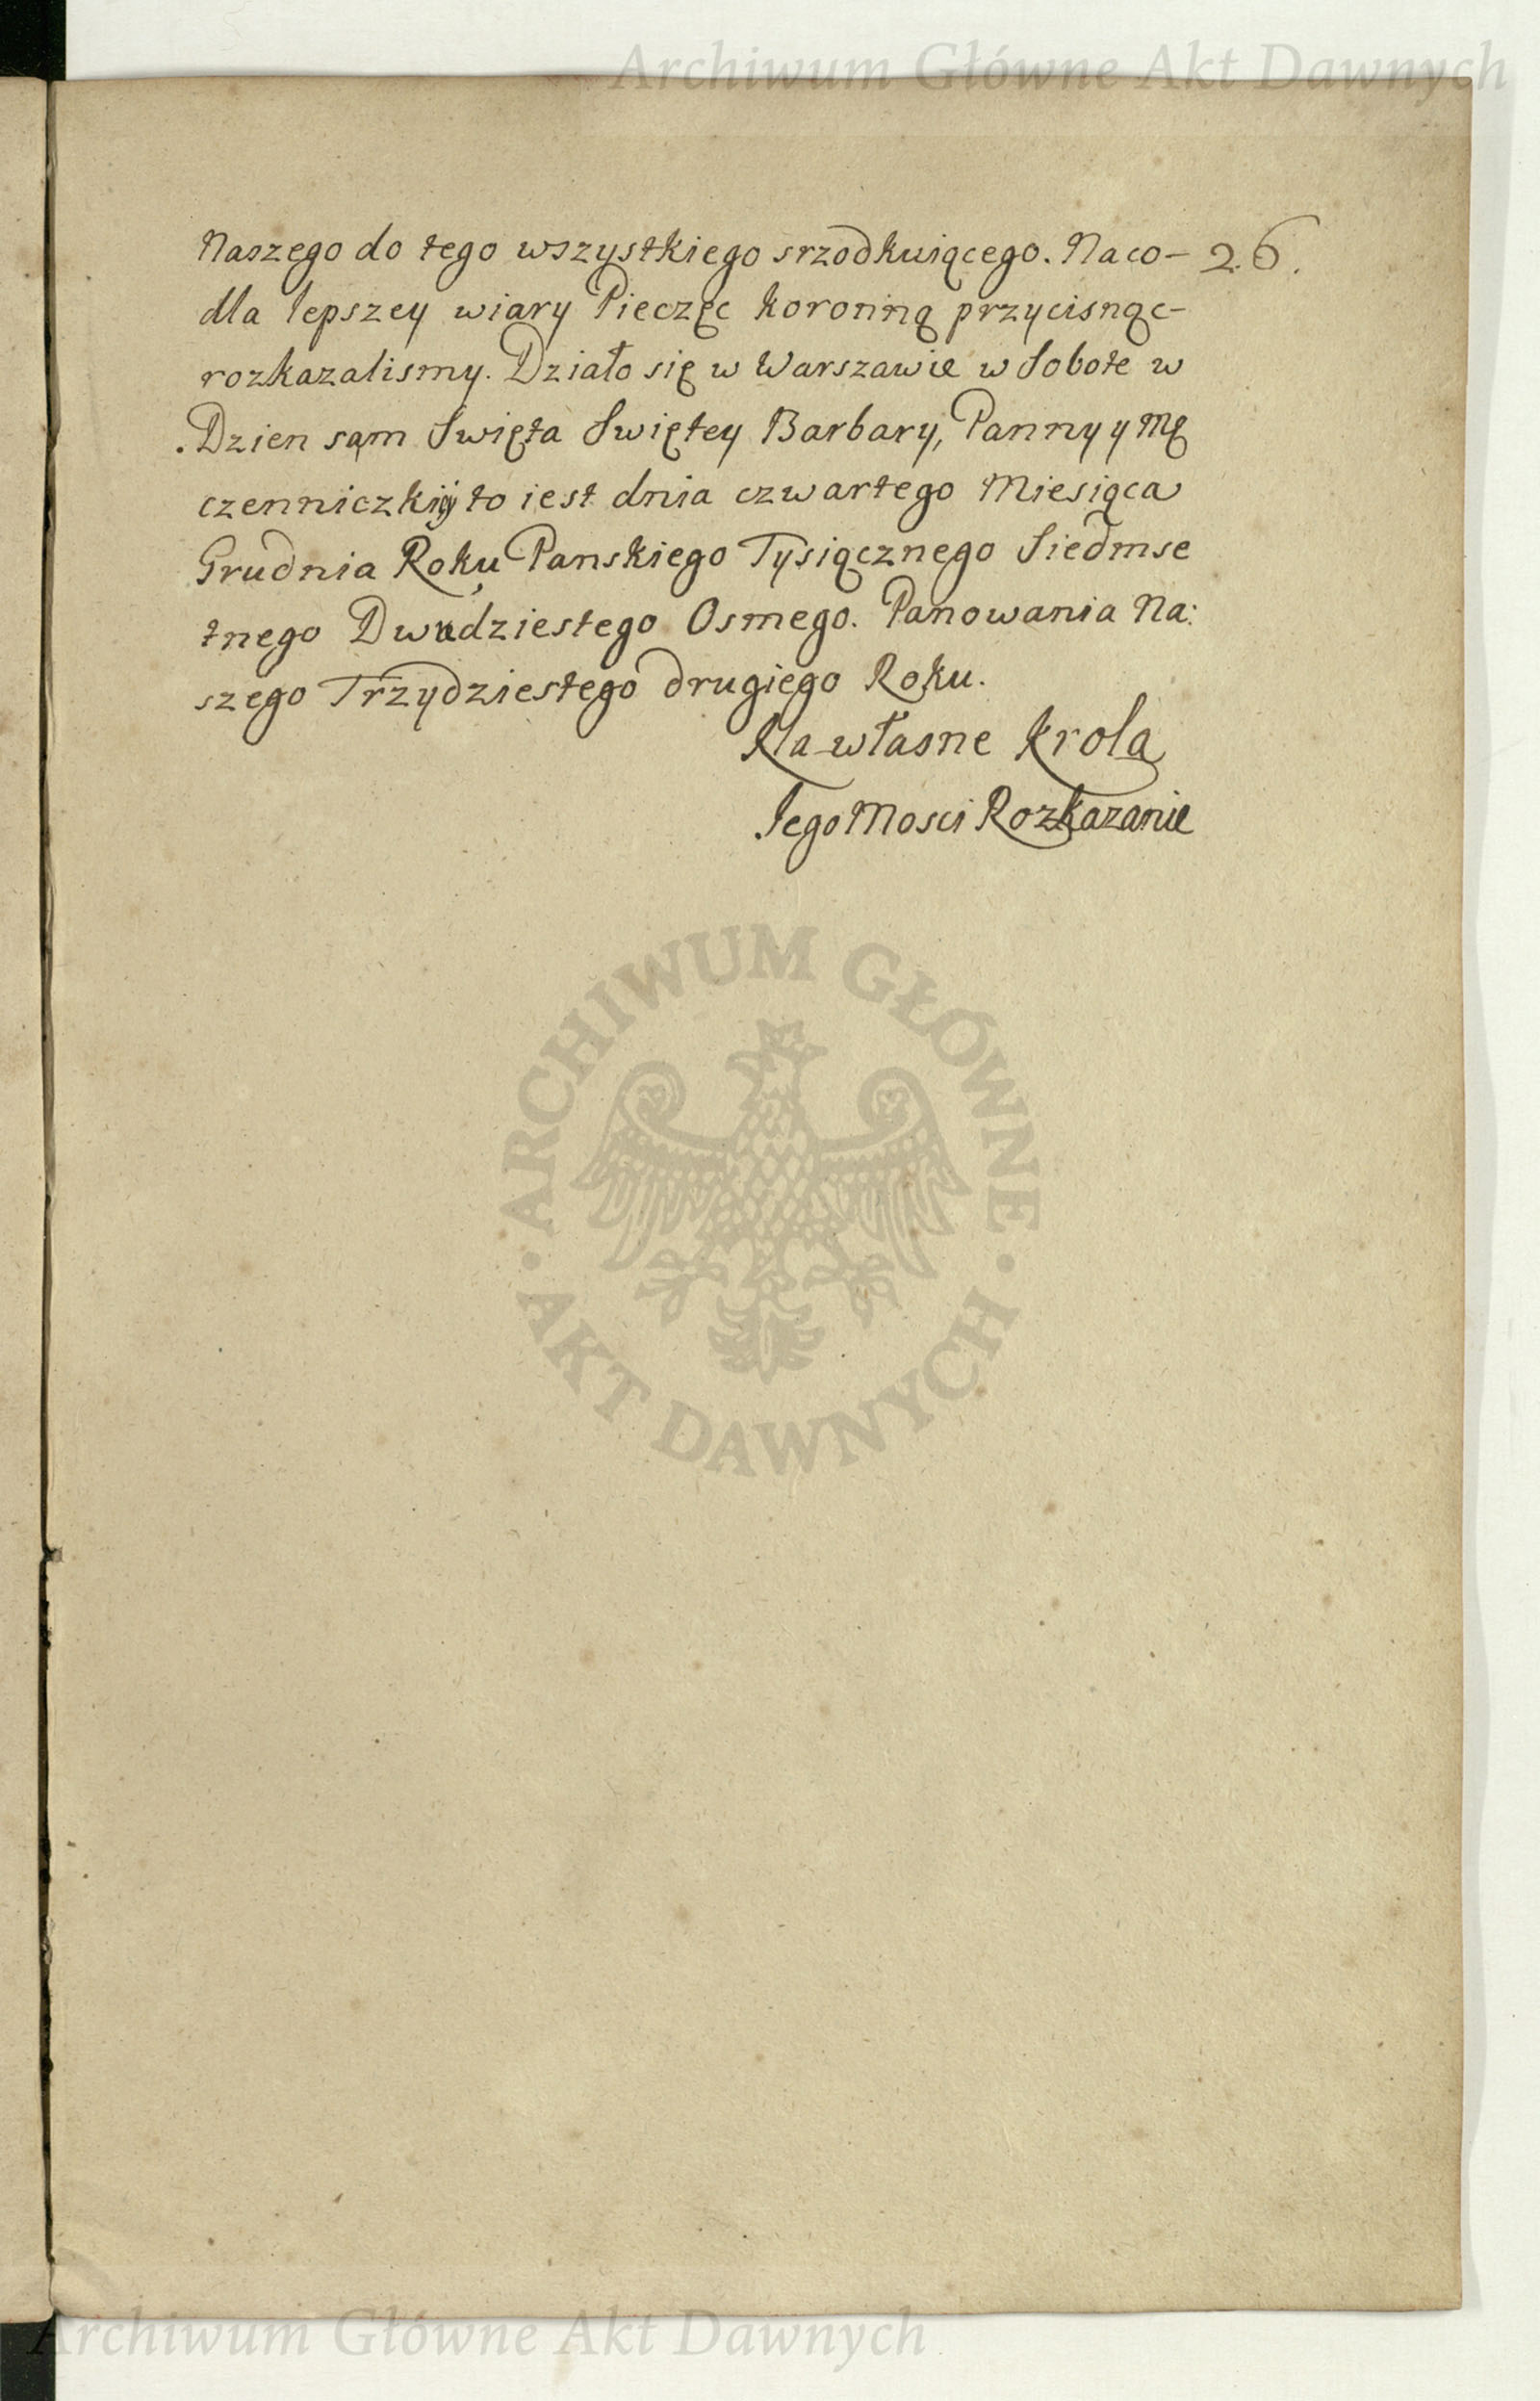 Archiwum Główne Akt Dawnych
Naszego do tego wszystkiego srzodkuiącego. Na co-
26.
dla lepszey wiary Pieczęc koronną przycisnąc-
rozkazalismy. Działo się w Warszawie w Sobote w
.Dzien sąm Swięta Swiętey Barbary, Panny y Mę
czenniczkiy to iest dnia czwartego Miesiąca
Grudnia Roku Panskiego Tysiącznego Siedmse
tnego Dwudziestego Osmego. Panowania Na:
szego Trzydziestego drugiego Roku.
Na własne Krola
Jego Mosci Rozkazanie
ARCHIWUM GŁÓWNE
· AKT DAWNYCH ·
Archiwum Główne Akt Dawnych